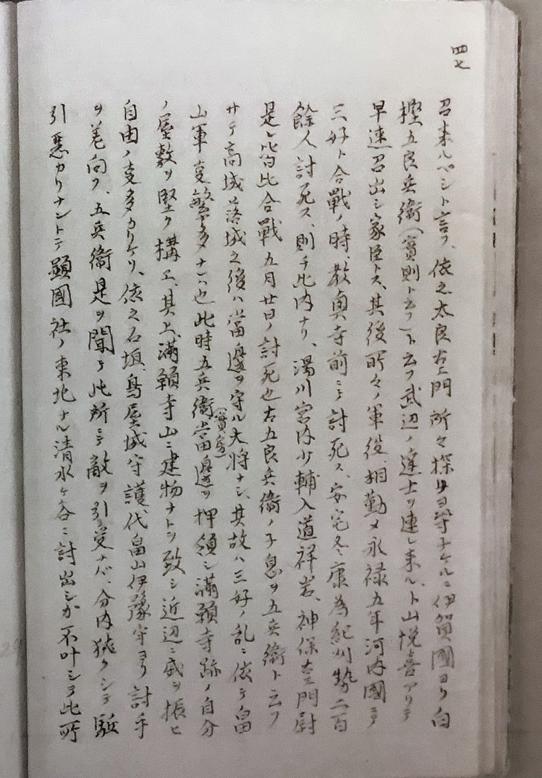 四七
召来ルベシト言フ、依之太良左エ門所々探リヨ尋ナケルニ伊賀國ヨリ白
樫五良兵衛（實則ト云フ）ト云フ武辺ノ達士ヲ連レ来ル、ト山悦喜アリテ
早速召出シ家臣トス、其後所々ノ軍役相勤メ永禄五年河内國ニテ
三好ト合戰ノ時、教興寺前ニテ討死ス、安宅冬康為紀州勢二百
餘人討死ス、則チ此内ナリ、湯川宮内少輔入道祥岩、神保左エ門尉
是レ皆比合戰五月廿日ノ討死也右五良兵衛ノ子息ヲ五兵衛ト云フ
サテ高城モ落城之後ハ當邊ヲ守ル大将ナシ、其故ハ三好ノ乱ニ依テ畠
山軍変繁多ナレハ也此時五兵衛當邊ヲ押領シ滿願寺跡ノ自分
ノ屋敷ヲ堅ク構エ、其上滿願寺山ニ建物ナトヲ致シ近辺ニ威ヲ振ヒ
自由ノ支多カリケリ、依之石垣、鳥屋城守護代畠山伊豫守ヨリ討手
ヲ差向フ、五兵衛是ヲ聞テ此所ニテ敵ヲ引受ナバ、分内狭クシテ駈
引悪カリナントテ顕國社ノ東北ナル清水ヶ谷ニ討出シガ不叶シテ此所